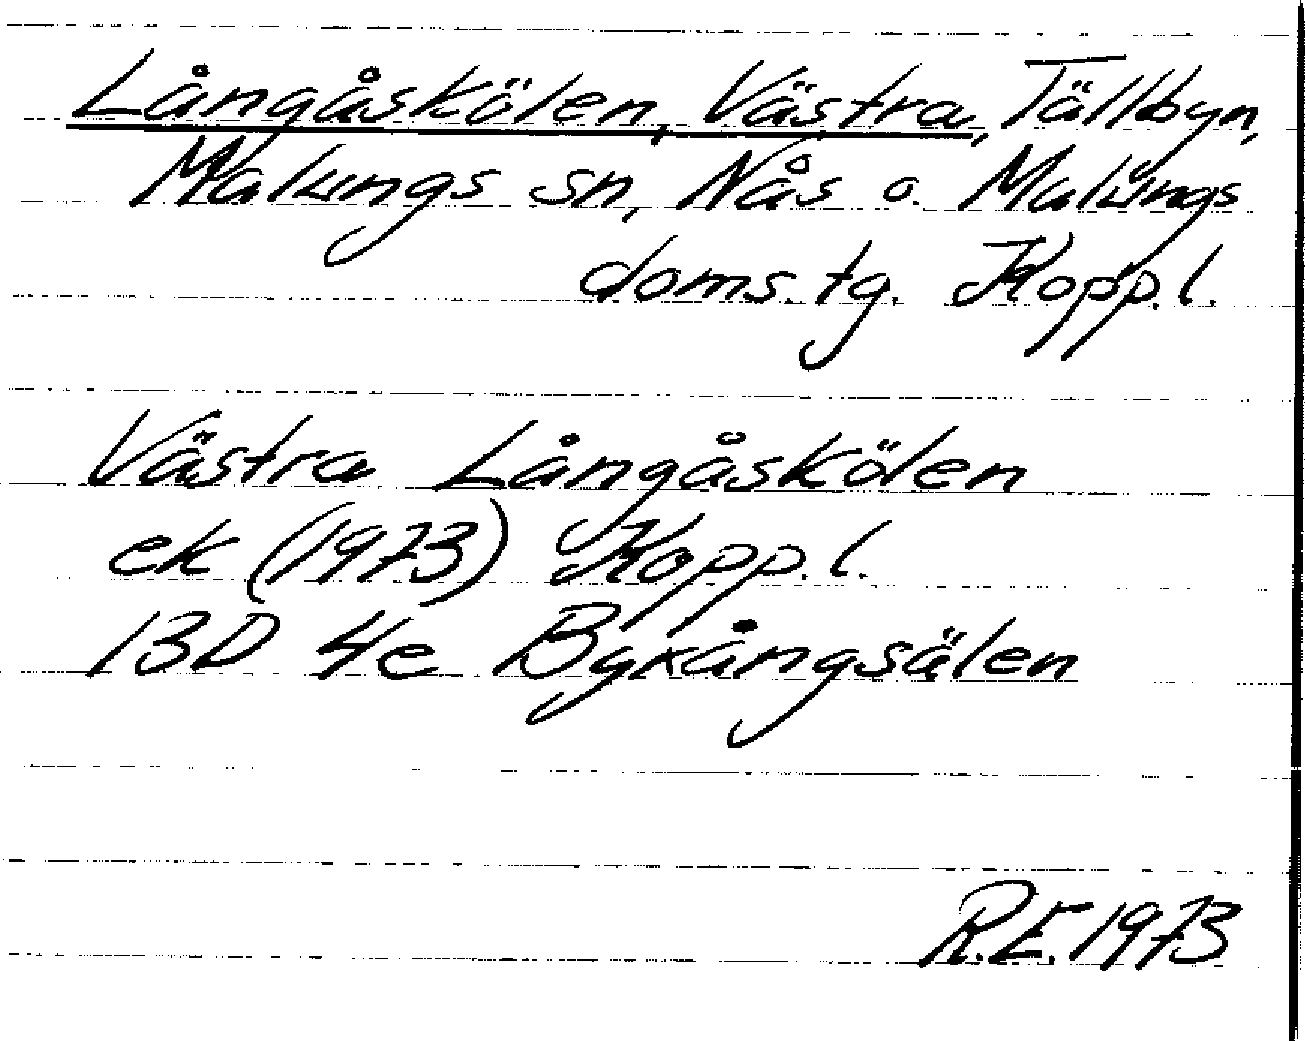 Långåskölen, Västra, Tällbyn,
Malungs sn, Nås o. Malungs
doms.tg. Kopp.l.
Västra Långåskölen
ek (1973) Kopp.l.
13D 4e Bykångsälen
R.E. 1973